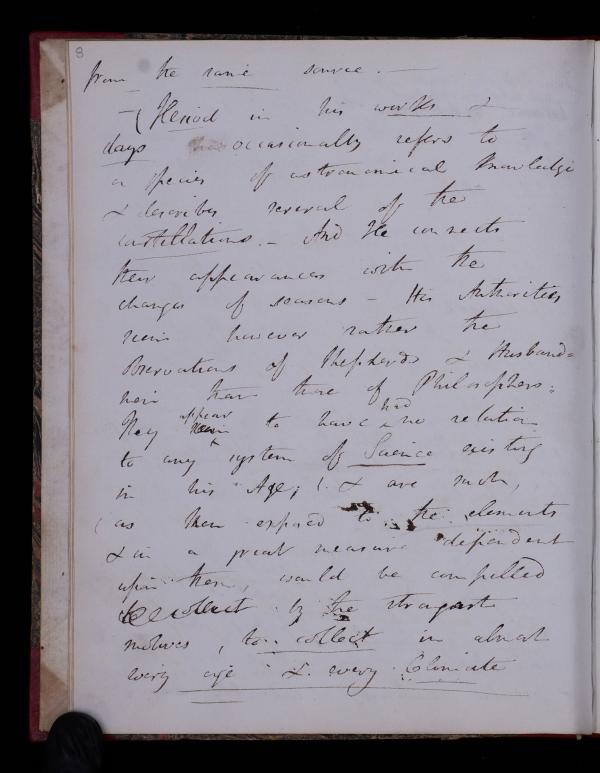 8
from the same source. —
— (Hesiod in his works &
days occasionally refers to
a species of astronomical knowledge
& describes several of the
constillations. — And He connects
their appearances with the
changes of seasons — His Authorities
seem however rather the
observations of Shepherds & Husband=
men than those of Philosophers:
appear had
They seem to have no relation
to any system of Science existing
in his Age; (. & are such,
(as Men exposed to the elements
& in a great measure dependent
upon them, would be compelled
to collect by the strongest
motives, to collect in almost
every age & every Climate